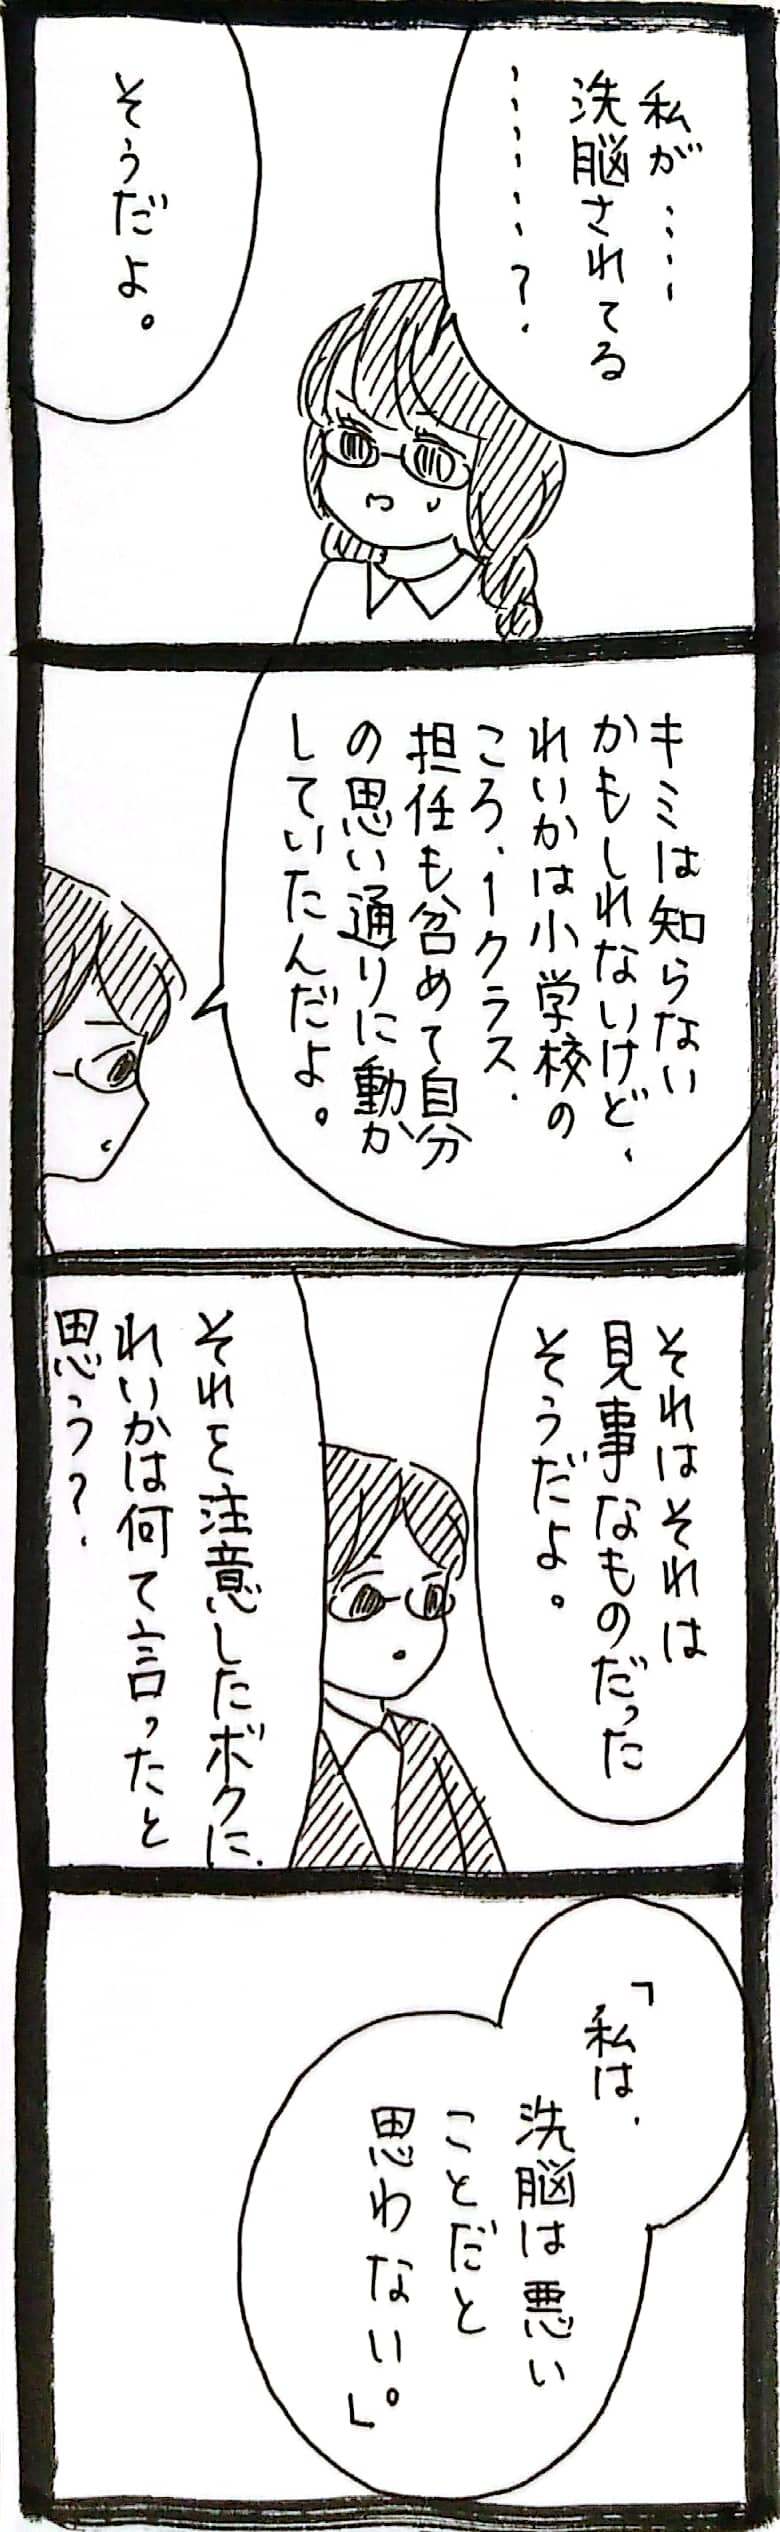 私が‥‥‥
洗脳されてる
‥‥‥‥‥‥？
そうだよ。
キミは知らない
かもしれないけど、
れいかは小学校の
ころ、1クラス、
担任も含めて自分
の思い通りに動か
していたんだよ。
それはそれは
見事なものだった
そうだよ。
それを注意したボクに、
れいかは何て言ったと
思う？
「私は、
洗脳は悪い
ことだと
思わない。」